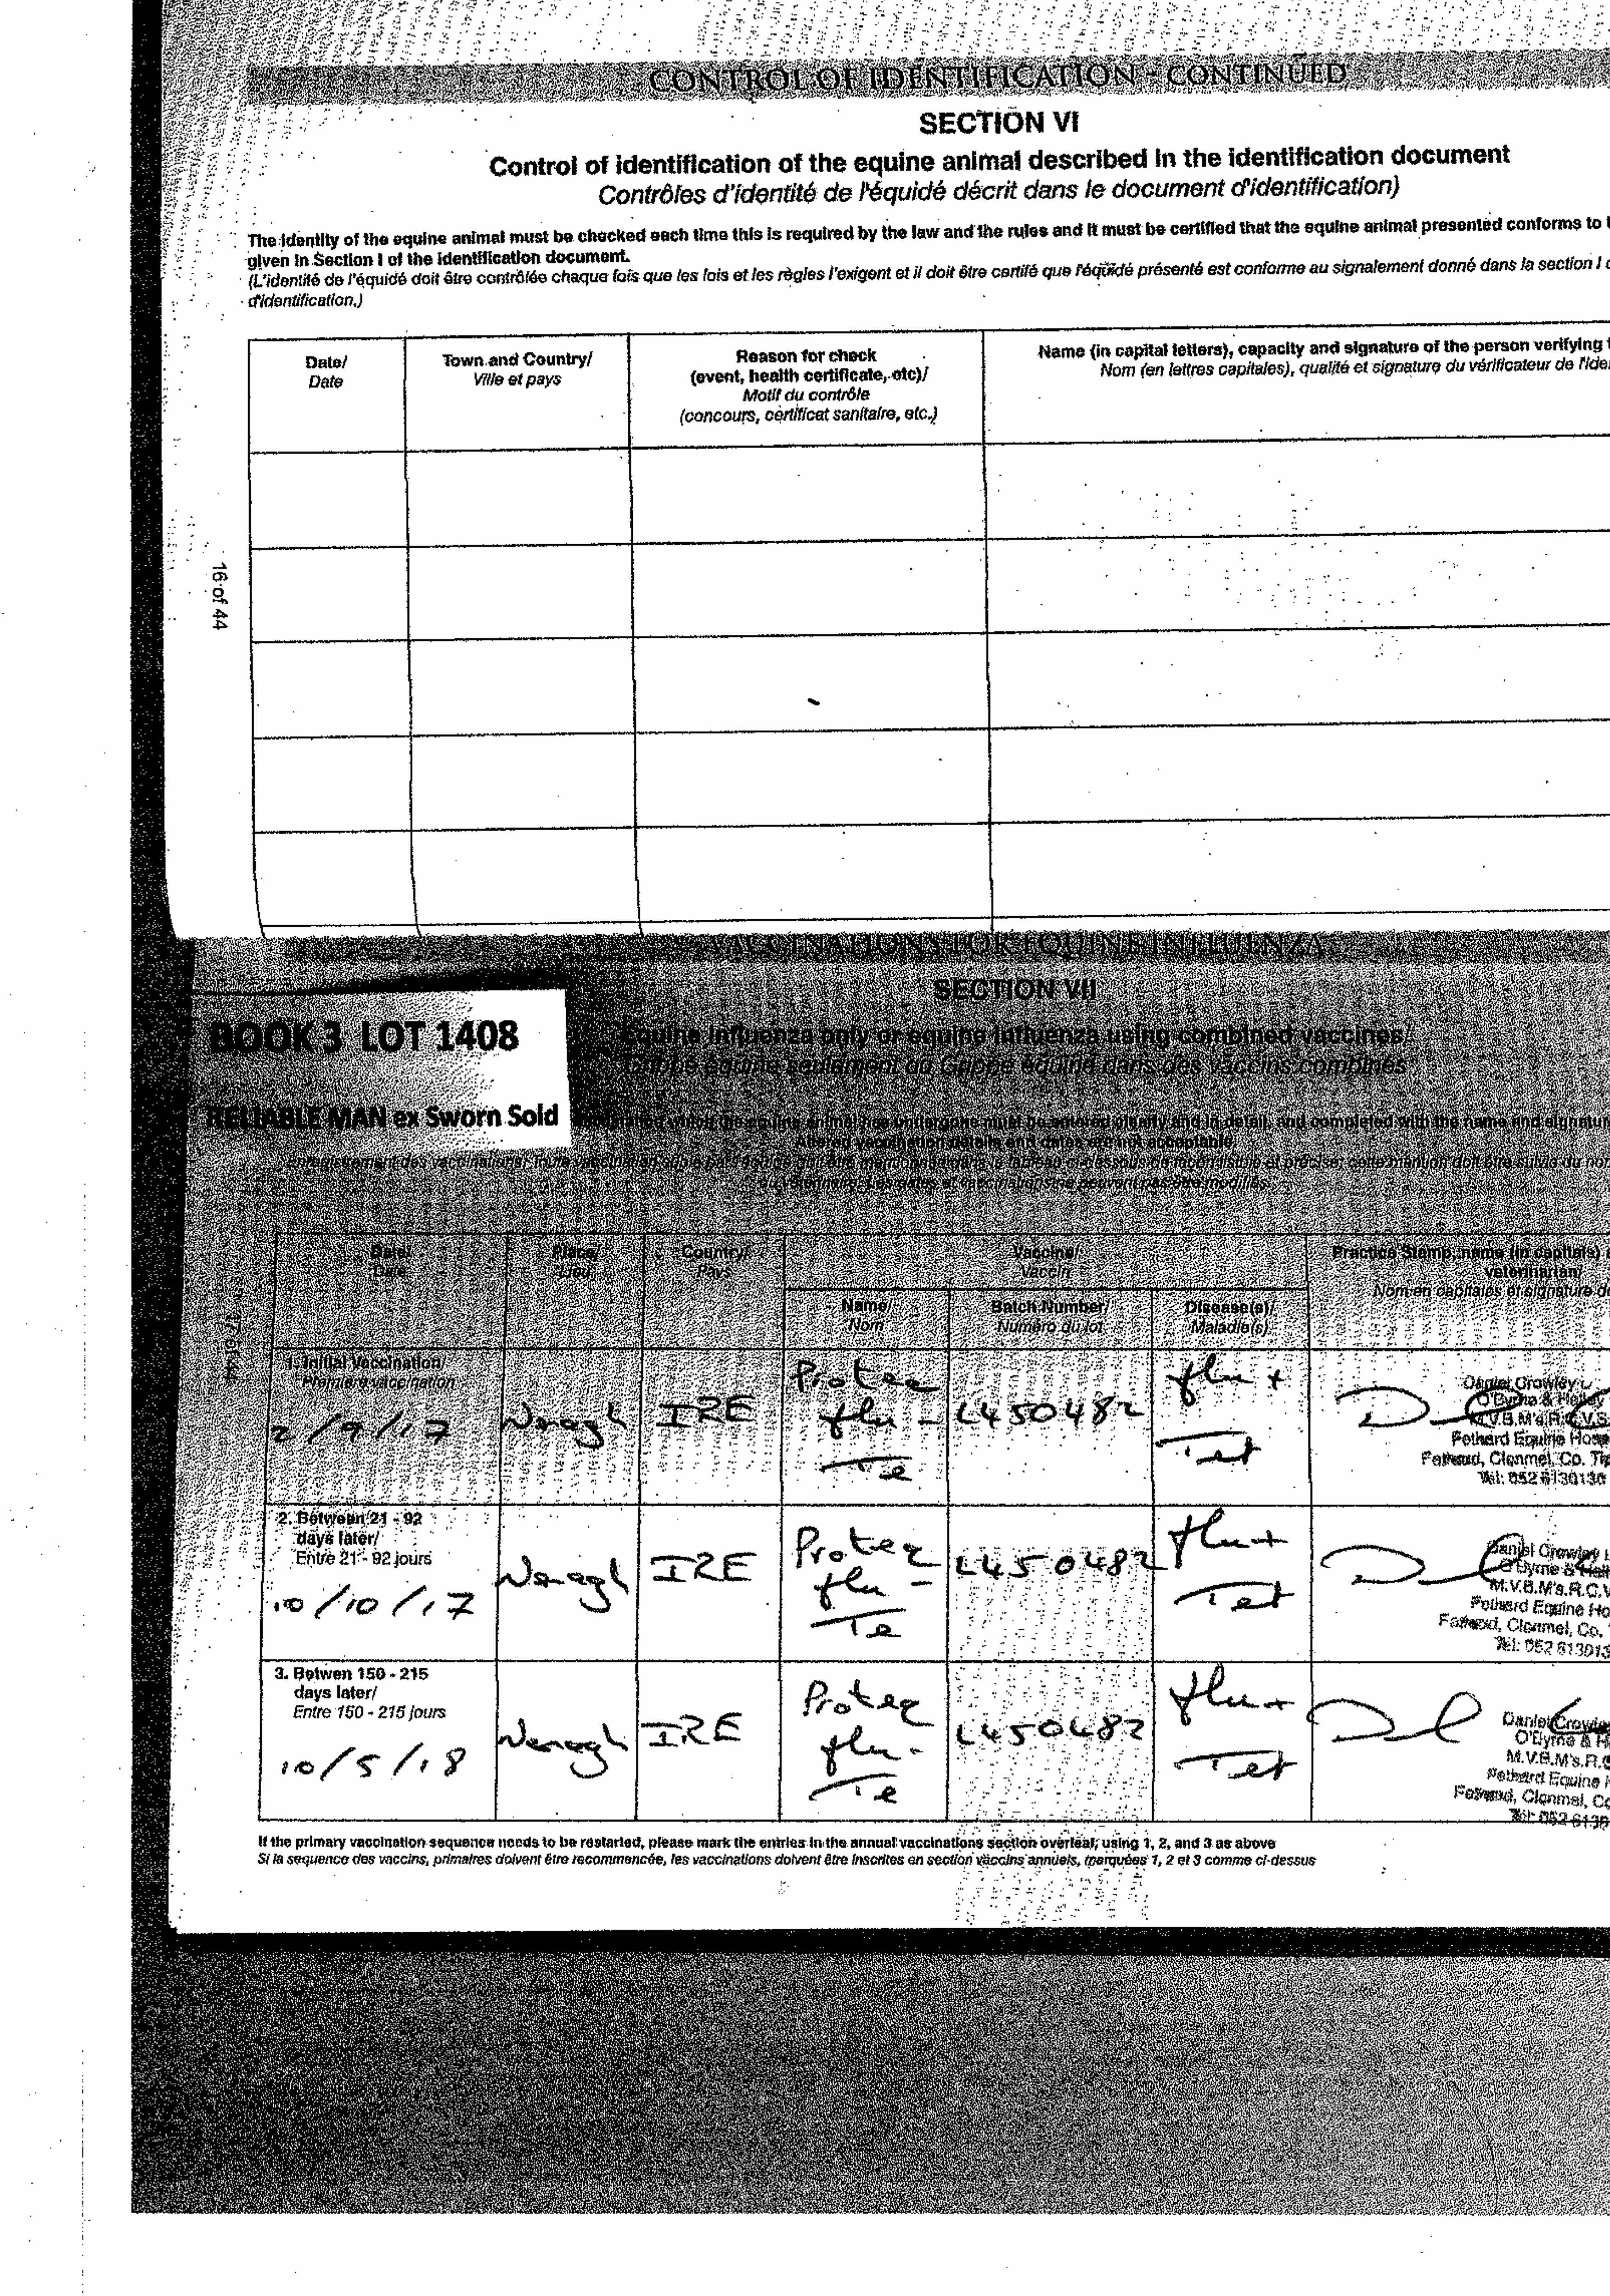 CONTROL OF IDENTIFICATION - CONTINUED
SECTION VI
Control of identification of the equine animal described in the identification document
Contrôles d'identité de l'équidé décrit dans le document d'identification)
The identity of the equine animal must be checked each time this is required by the law and the rules and it must be certified that the equine animal presented conforms to
given in Section I of the identification document.
(L'identité de l'équidé doit être contrôlée chaque fois que les lois et les règles l'exigent et il doit être certifé que l'équidé présenté est conforme au signalement donné dans la section I
d'identification.)
Date/
Date
Town and Country/
Ville et pays
Reason for check
(event, health certificate, etc)/
Motif du contrôle
(concours, certificat sanitaire, etc.)
Name (in capital letters), capacity and signature of the person verifying
Nom (en lettres capitales), qualité et signature du vérificateur de
16 of 44
VACCINATIONS FOR EQUINE INFLUENZA
SECTION VII
BOOK 3 LOT 1408
Equine Influenza only or equine influenza using combined vaccines/
Grippe équine seulement ou Grippe équine dans des vaccins combinés
RELIABLE MAN ex Sworn Sold
which the equine animal has undergone must be entered clearly and in detail, and completed with the name and
Altered vaccination details and dates are not acceptable.
Enregistrement des vaccinations: Toute vaccination subie par l'équidé doit être mentionnée dans le tableau ci-dessous de façon lisible et précise; cette mention doit être suivie du
du vétérinaire. Les dates et vaccinations ne peuvent pas être modifiés.
Date/
Date
Place/
Lieu
Country/
Pays
Vaccine/
Vaccin
Practice Stamp, name (in capitals)
veterinarian/
Nom en capitales et signature
Name/
Nom
Batch Number/
Numéro du lot
Disease(s)/
Maladie(s)
17 of 44
1. Initial Vaccination/
Première vaccination
2/9/17 Nenagh IRE Proteq flu-Te L450482 flu + Tet
Daniel Crowley
O'Byrne & Halley
M.V.B.M's.R.C.V.S.
Fethard Equine
Fethard, Clonmel, Co.
Tel: 052 6130130
2. Between 21 - 92
days later/
Entre 21 - 92 jours
10/10/17 Nenagh IRE Proteq flu-Te L450482 flu + Tet
Daniel Crowley
O'Byrne &
M.V.B.M's.R.C.V
Fethard Equine Ho
Fethard, Clonmel, Co.
Tel: 052 613013
3. Betwen 150 - 215
days later/
Entre 150 - 215 jours
10/5/18 Nenagh IRE Proteq flu-Te L450482 flu + Tet
Daniel Crowley
O'Byrne & H
M.V.B.M's.R.C
Fethard Equine
Fethard, Clonmel, Co
Tel: 052 6130
If the primary vaccination sequence needs to be restarted, please mark the entries in the annual vaccinations section overleaf, using 1, 2, and 3 as above
Si la sequence des vaccins, primaires doivent être recommencée, les vaccinations doivent être inscrites en section vaccins annuels, marquées 1, 2 et 3 comme ci-dessus